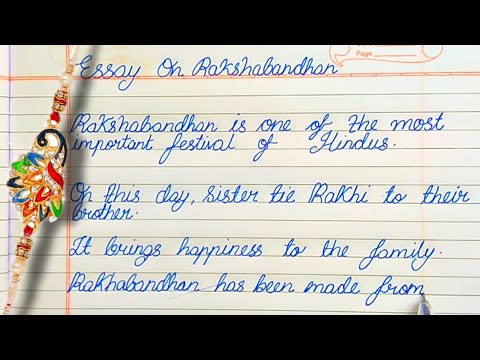 Page
Essay On Rakshabandhan
Rakshabandhan is one of the most
important festival of Hindus.
On this day, sister tie Rakhi to their
brother.
It brings happiness to the family.
Rakhabandhan has been made from